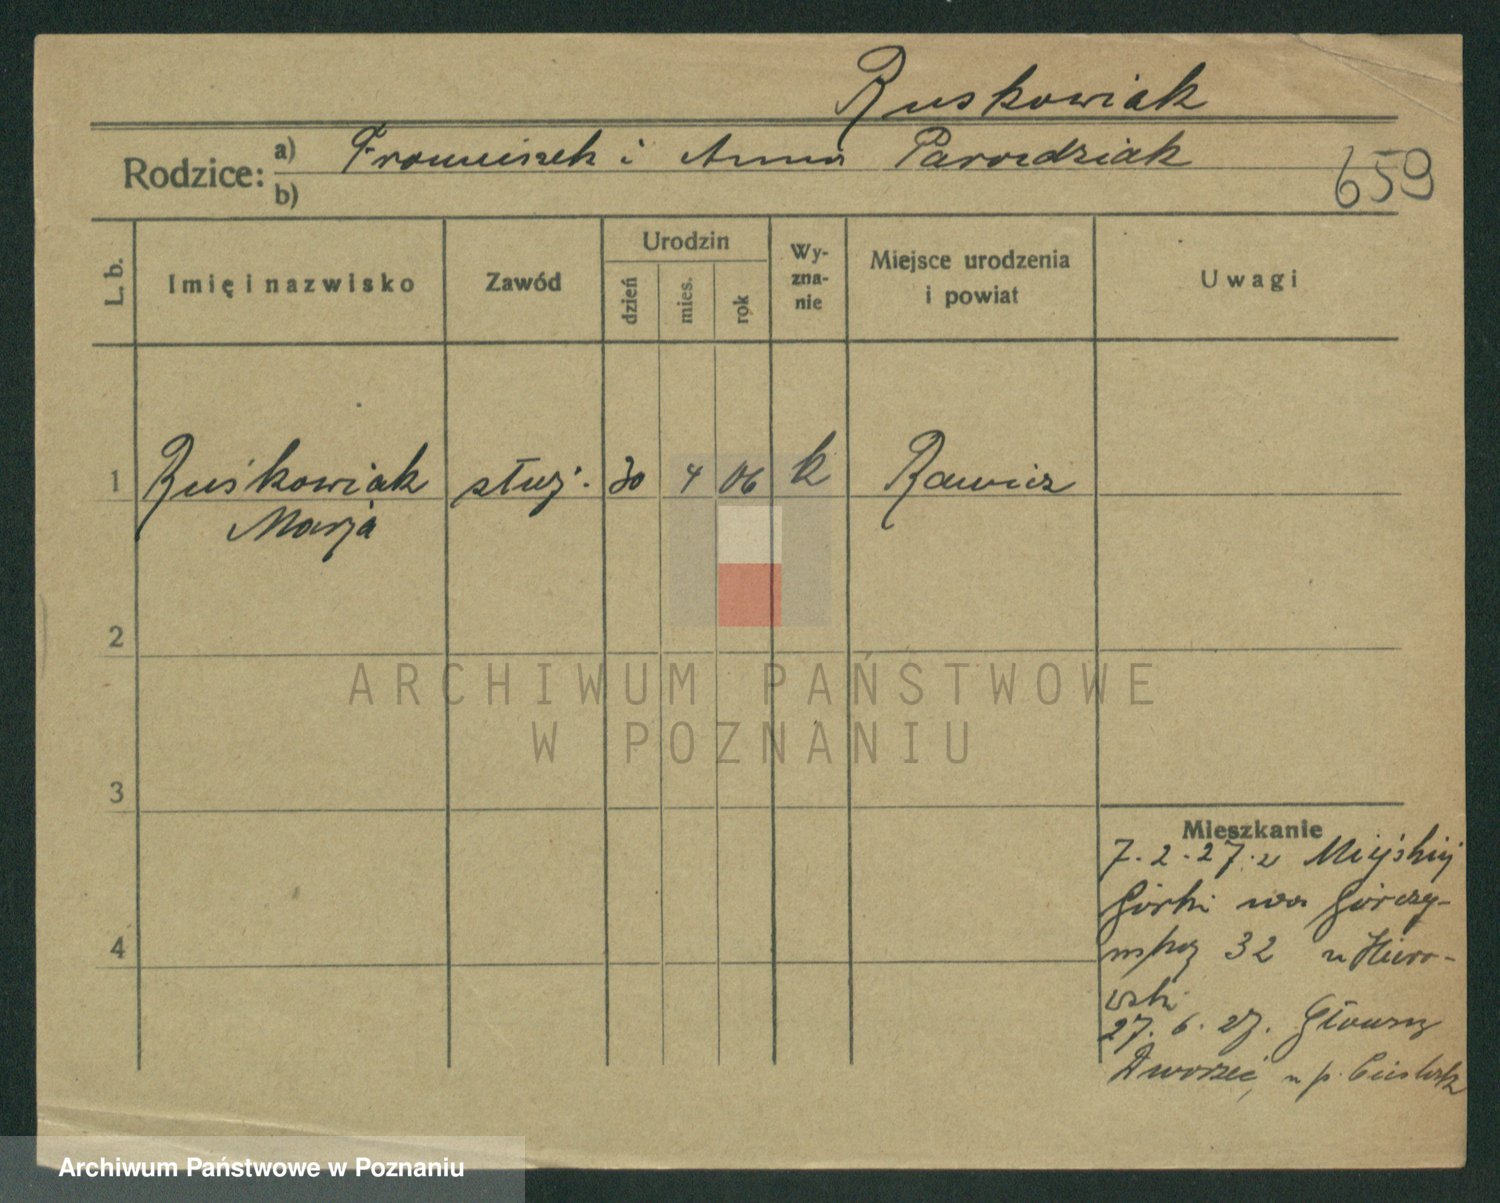 Ruskowiak
Rodzice: a) Franciszek i Anna
b)
659
L. b.
Imię i nazwisko
Zawód
Urodzin
dzień
mies.
rok
Wy-
zna-
nie
Miejsce urodzenia
i powiat
Uwagi
1 Ruśkowiak służ. 30 4 06 k Rawicz
Marja
2
ARCHIWUM PAŃSTWOWE
W POZNANIU
3
4
Mieszkanie
7.2.27. z Miejskiej
Górki na Górczy-
32
27.6.27. Główny
Dworzec,
Archiwum Państwowe w Poznaniu